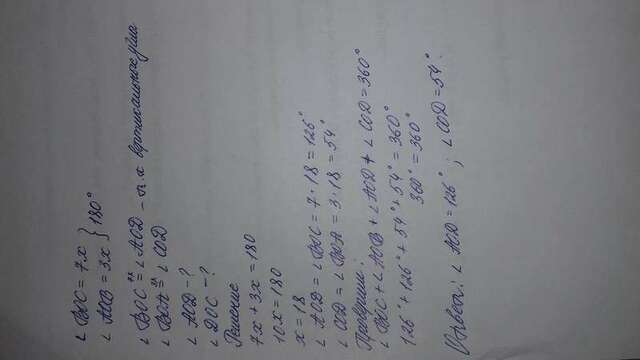 ∠ BOC = 7x } 180°
∠ AOB = 3x
∠ BOC = ∠ AOD - т.к вертикальные угла
∠ BOA = ∠ COD
∠ AOD - ?
∠ DOC - ?
Решение
7x + 3x = 180
10x = 180
x = 18
∠ AOD = ∠ BOC = 7 · 18 = 126°
∠ COD = ∠ BOA = 3 · 18 = 54°
Проверим:
∠ BOC + ∠ AOB + ∠ AOD + ∠ COD = 360°
126° + 126° + 54° + 54° = 360°
360° = 360°
Ответ: ∠ AOD = 126° ; ∠ COD = 54°.